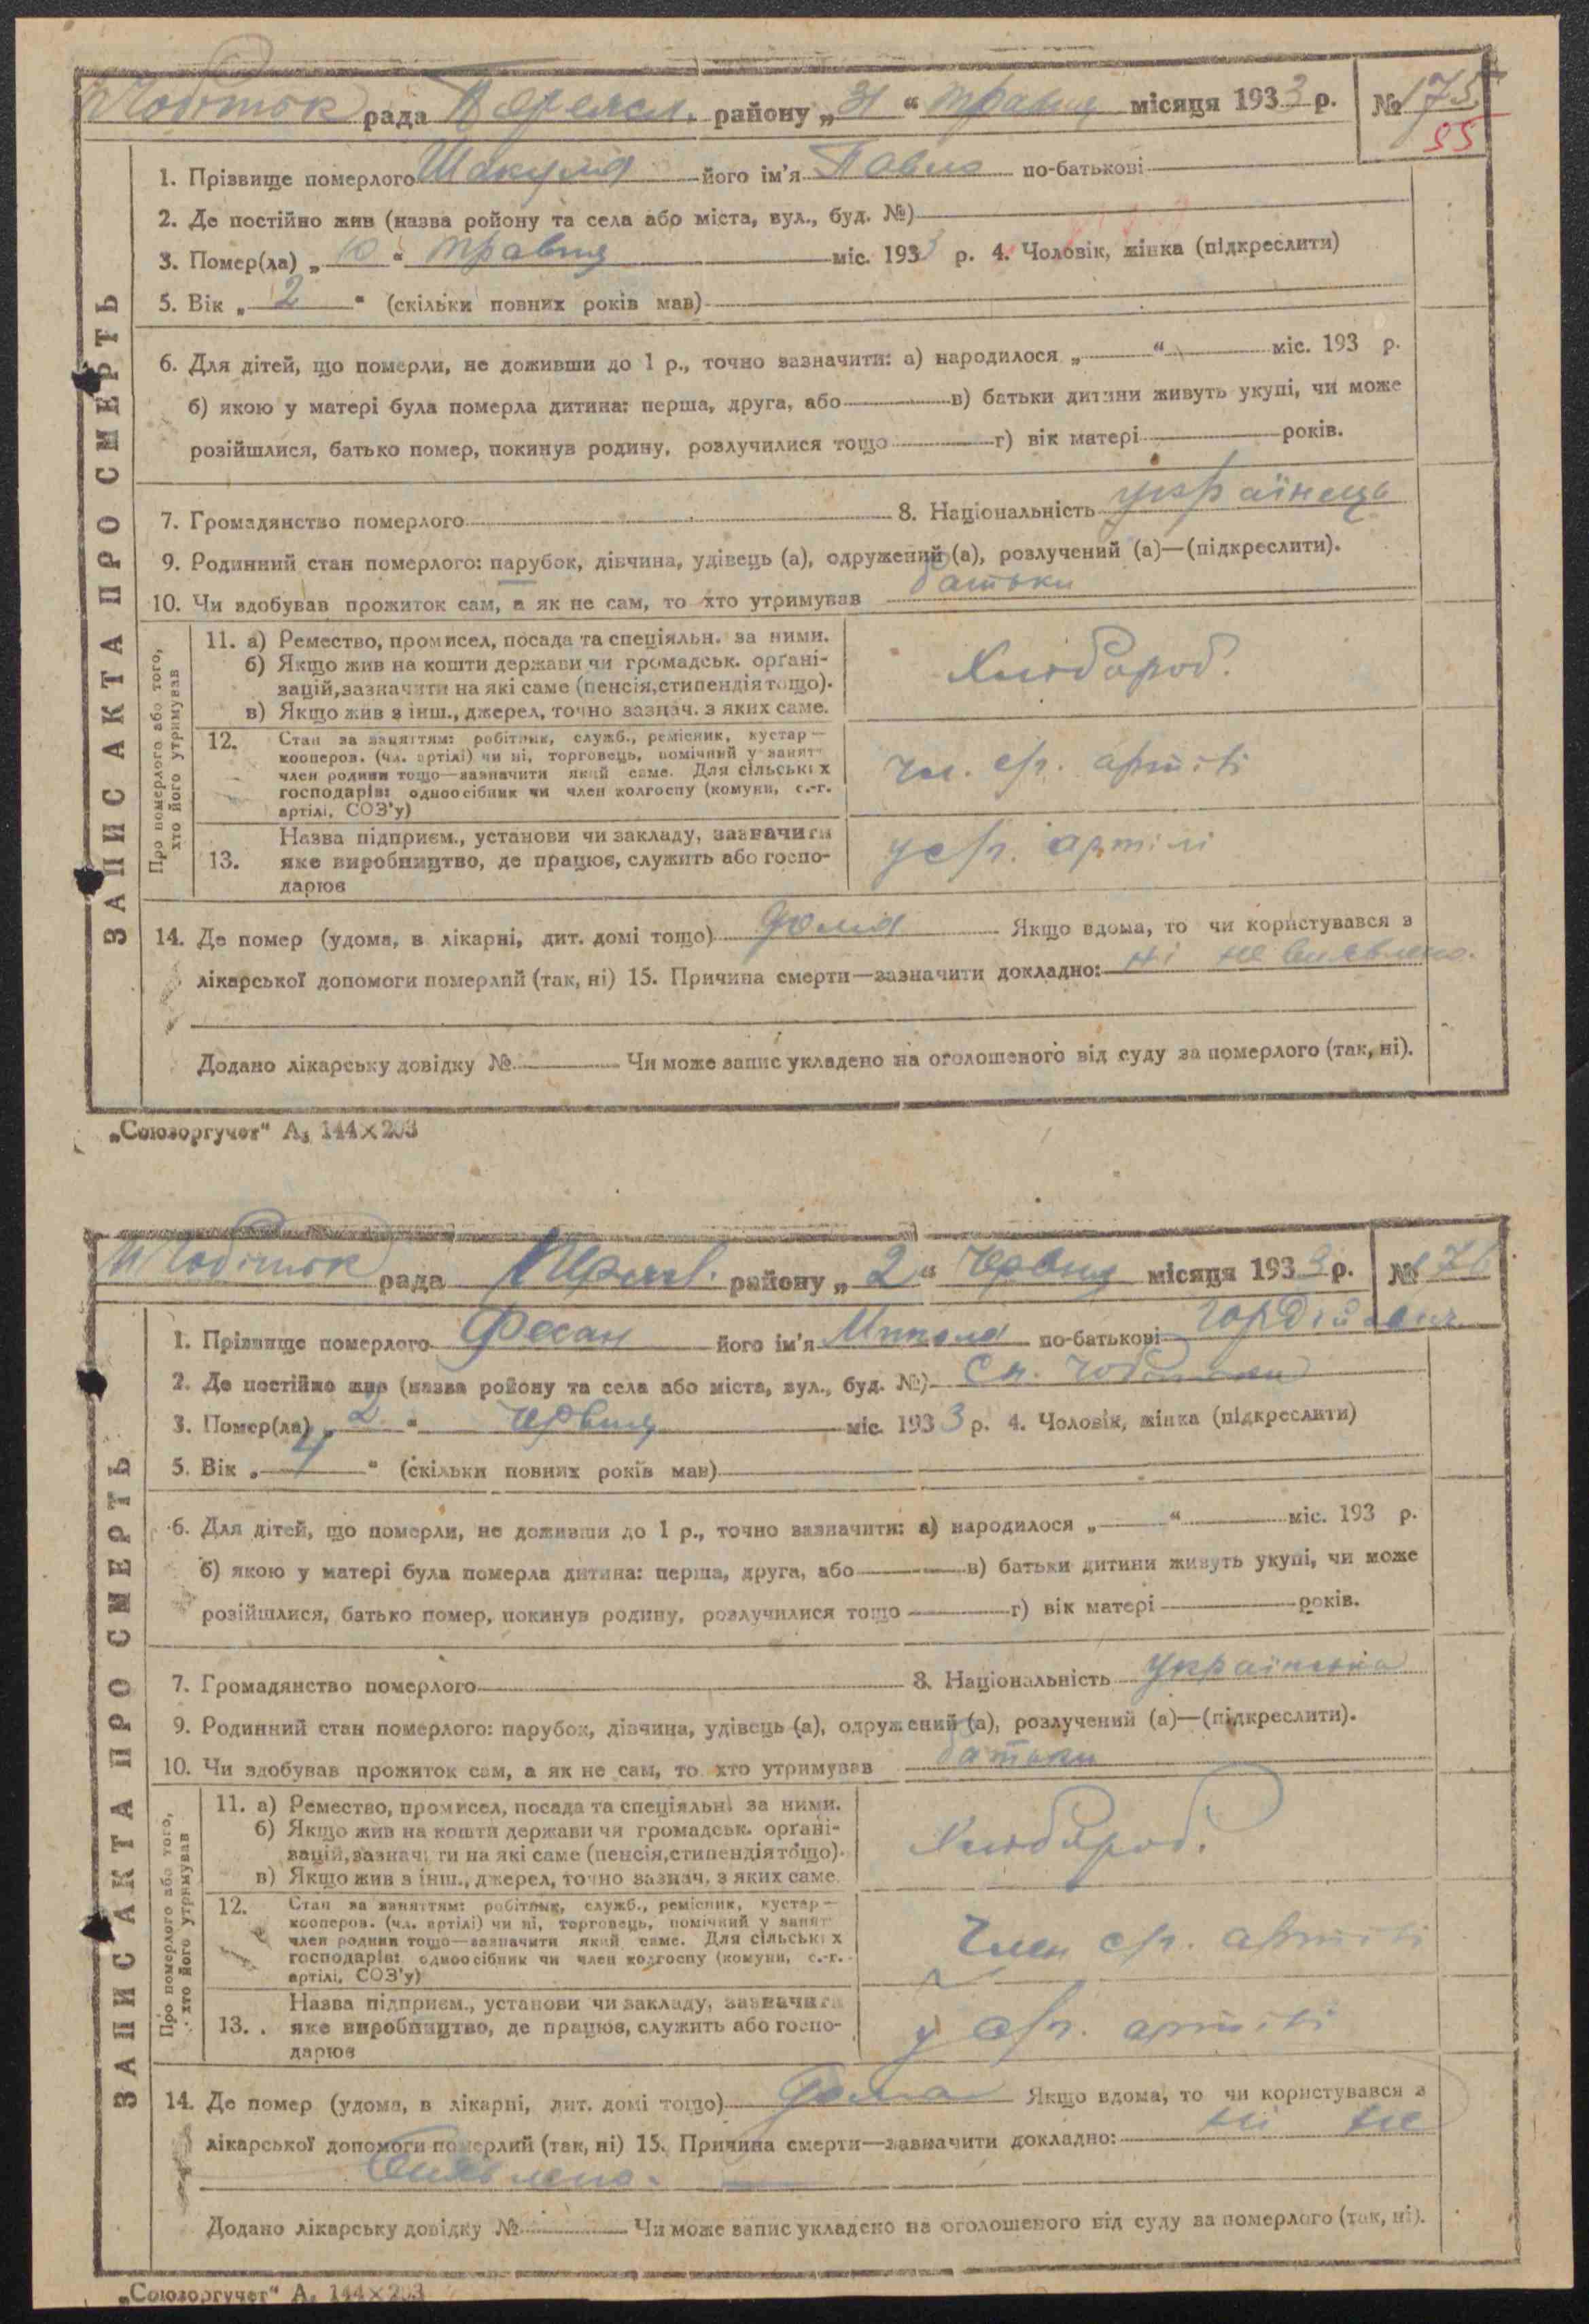 рада Переясл. району „31“ травня місяця 1933 р. № 175
95
1. Прізвище померлого Шакула його ім'я Павло по-батькові
2. Де постійно жив (назва ройону та села або міста, вул., буд. №)
3. Помер(ла) „10“ травня міс. 1933 р. 4. Чоловік, жінка (підкреслити)
5. Вік „2“ (скільки повних років мав)
6. Для дітей, що померли, не доживши до 1 р., точно зазначити: а) народилося „ “ міс. 193 р.
б) якою у матері була померла дитина: перша, друга, або в) батьки дитини живуть укупі, чи може
розійшлися, батько помер, покинув родину, розлучилися тощо г) вік матері років.
7. Громадянство померлого 8. Національність українець
9. Родинний стан померлого: парубок, дівчина, удівець (а), одружений (а), розлучений (а)—(підкреслити).
10. Чи здобував прожиток сам, а як не сам, то хто утримував батьки
ЗАПИС АКТА ПРО СМЕРТЬ
Про померлого або того,
хто його утримував
11. а) Ремество, промисел, посада та спеціяльн. за ними.
б) Якщо жив на кошти держави чи громадськ. орґані-
зацій, зазначити на які саме (пенсія, стипендія тощо).
в) Якщо жив з інш., джерел, точно зазнач. з яких саме.
Хлібороб.
12. Стан за заняттям: робітник, служб., ремісник, кустар—
кооперов. (чл. артілі) чи ні, торговець, помічний у занят
член родини тощо—зазначити який саме. Для сільських
господарів: одноосібник чи член колгоспу (комуни, с.-г.
артілі, СОЗ'у)
чл. с/г. артілі
13. Назва підприєм., установи чи закладу, зазначити
яке виробництво, де працює, служить або госпо-
дарює
у с/г. артілі
14. Де помер (удома, в лікарні, дит. домі тощо) дома Якщо вдома, то чи користувався з
лікарської допомоги померлий (так, ні) 15. Причина смерти—зазначити докладно: ні не виявлено.
Додано лікарську довідку № Чи може запис укладено на оголошеного від суду за померлого (так, ні).
„Союзоргучет“ А₅ 144×203
рада району „2“ червня місяця 1933 р. № 176
1. Прізвище померлого Фесан його ім'я Микола по-батькові Гордійович
2. Де постійно жив (назва ройону та села або міста, вул., буд. №)
3. Помер(ла) „2“ червня міс. 1933 р. 4. Чоловік, жінка (підкреслити)
5. Вік „4“ (скільки повних років мав)
6. Для дітей, що померли, не доживши до 1 р., точно зазначити: а) народилося „ “ міс. 193 р.
б) якою у матері була померла дитина: перша, друга, або в) батьки дитини живуть укупі, чи може
розійшлися, батько помер, покинув родину, розлучилися тощо г) вік матері років.
7. Громадянство померлого 8. Національність
9. Родинний стан померлого: парубок, дівчина, удівець (а), одружений (а), розлучений (а)—(підкреслити).
10. Чи здобував прожиток сам, а як не сам, то хто утримував батьки
ЗАПИС АКТА ПРО СМЕРТЬ
Про померлого або того,
хто його утримував
11. а) Ремество, промисел, посада та спеціяльн. за ними.
б) Якщо жив на кошти держави чи громадськ. орґані-
зацій, зазначити на які саме (пенсія, стипендія тощо).
в) Якщо жив з інш., джерел, точно зазнач. з яких саме.
Хлібороб.
12. Стан за заняттям: робітник, служб., ремісник, кустар—
кооперов. (чл. артілі) чи ні, торговець, помічний у занят
член родини тощо—зазначити який саме. Для сільських
господарів: одноосібник чи член колгоспу (комуни, с.-г.
артілі, СОЗ'у)
Член с/г. артілі
13. Назва підприєм., установи чи закладу, зазначити
яке виробництво, де працює, служить або госпо-
дарює
у с/г. артілі
14. Де помер (удома, в лікарні, дит. домі тощо) дома Якщо вдома, то чи користувався з
лікарської допомоги померлий (так, ні) 15. Причина смерти—зазначити докладно: ні не
виявлено.
Додано лікарську довідку № Чи може запис укладено на оголошеного від суду за померлого (так, ні).
„Союзоргучет“ А₅ 144×203